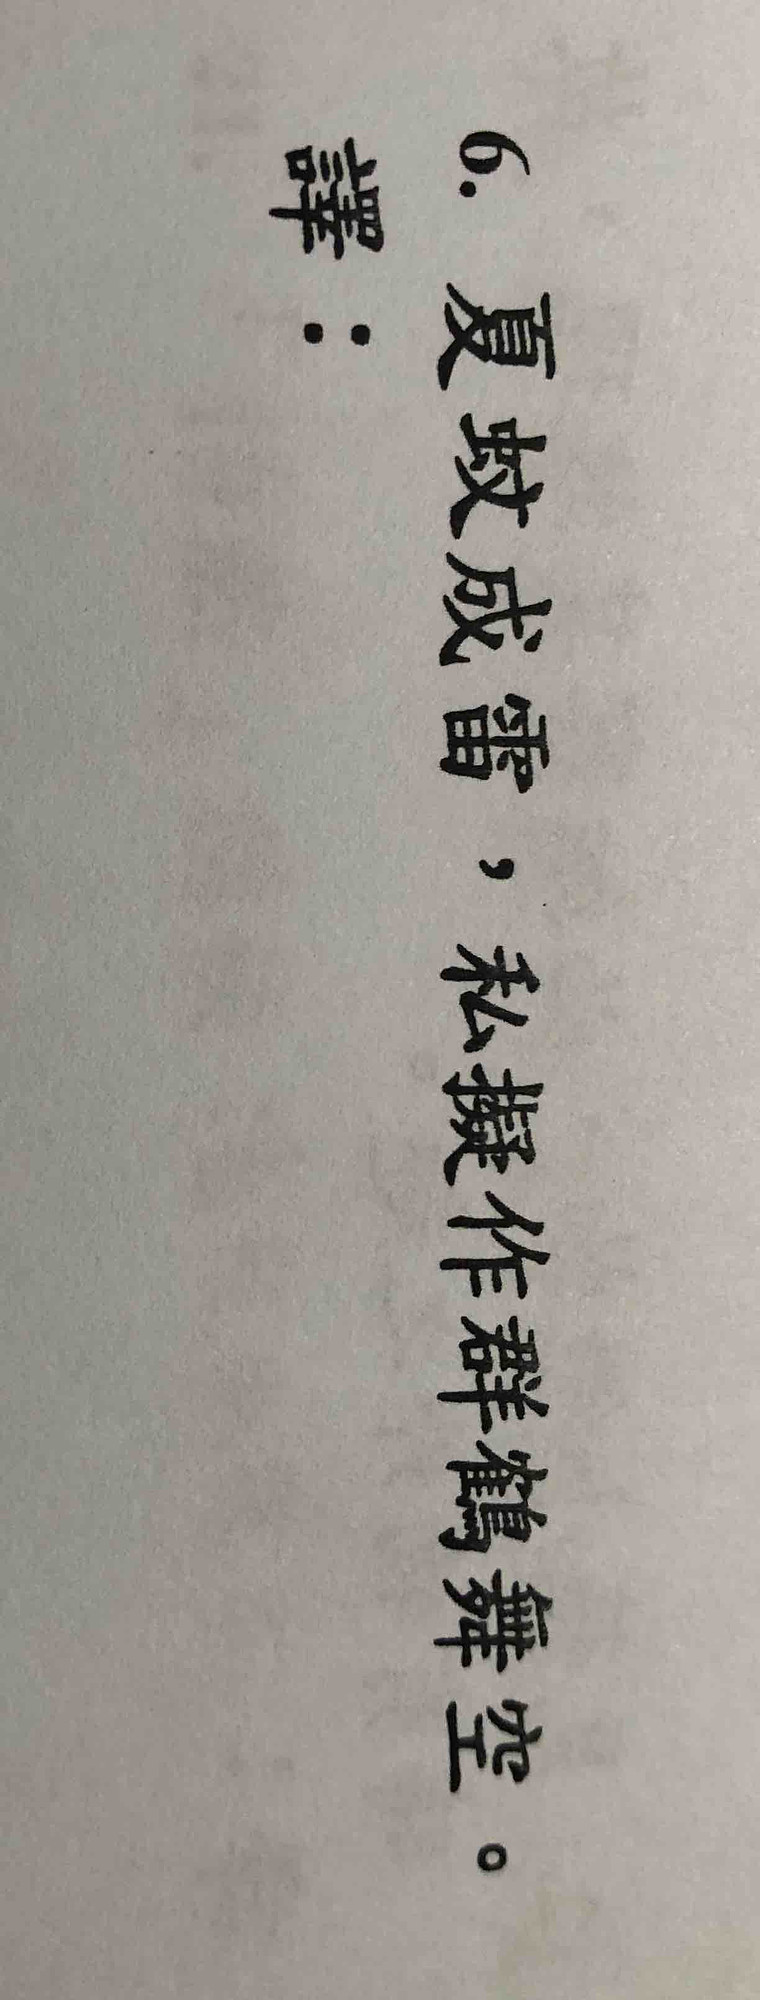 6. 夏蚊成雷，私擬作群鶴舞空。
譯：